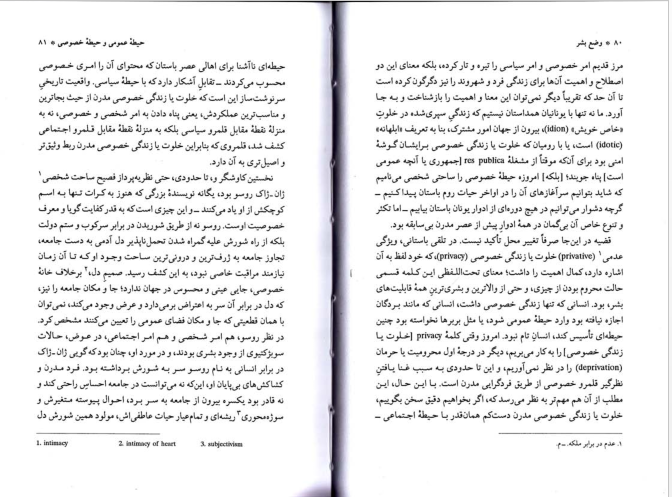 ۸۰ * وضع بشر
مرز قدیم امر خصوصی و امر سیاسی را تیره و تار کرده، بلکه معنای این دو
اصطلاح و اهمیت آن‌ها برای زندگی فرد و شهروند را نیز دگرگون کرده است
تا آن حد که تقریباً دیگر نمی‌توان این معنا و اهمیت را بازشناخت و به جا
آورد. ما نه تنها با یونانیان همداستان نیستیم که زندگیِ سپری‌شده در خلوتِ
«خاصِ خویش» (idion)، بیرون از جهان امور مشترک، بنا به تعریف «ابلهانه»
(idiotic) است، یا با رومیان که خلوت یا زندگی خصوصی برایشان گوشهٔ
امنی بود برای آنکه موقتاً از مشغلهٔ res publica [جمهوری یا آنچه عمومی
است] پناه جویند؛ [بلکه] امروزه حیطهٔ خصوصی را ساحتی شخصی می‌نامیم
که شاید بتوانیم سرآغازهای آن را در اواخر حیات روم باستان پیدا کنیم ـ
گرچه دشوار می‌توانیم در هیچ دوره‌ای از ادوار یونان باستان بیابیم ـ اما تکثر
و تنوع خاص آن بی‌گمان در همهٔ ادوار پیش از عصر مدرن بی‌سابقه بود.
قضیه در این‌جا صرفاً تغییر محل تأکید نیست. در تلقی باستانی، ویژگی
عدمی۱ (privative) خلوت یا زندگی خصوصی (privacy)، که خود لفظ به آن
اشاره دارد، کمال اهمیت را داشت؛ معنای تحت‌اللفظی این کلمه قسمی
حالت محروم بودن از چیزی، و حتی از والاترین و بشری‌ترین همهٔ قابلیت‌های
بشر، بود. انسانی که تنها زندگی خصوصی داشت، انسانی که مانند بردگان
اجازه نیافته بود وارد حیطهٔ عمومی شود، یا مثل بربرها نخواسته بود چنین
حیطه‌ای تأسیس کند، انسانِ تام نبود. امروز وقتی کلمهٔ privacy [خلوت یا
زندگی خصوصی] را به کار می‌بریم، دیگر در درجهٔ اول محرومیت یا حرمان
(deprivation) را در نظر نمی‌آوریم، و این تا حدودی به سبب غنا یافتنِ
نظرگیر قلمرو خصوصی از طریق فردگرایی مدرن است. با این حال، این
مطلب از آن هم مهم‌تر به نظر می‌رسد که، اگر بخواهیم دقیق سخن بگوییم،
خلوت یا زندگی خصوصی مدرن دست‌کم همان‌قدر با حیطهٔ اجتماعی ـ
۱. عدم در برابر ملکه. ـ م.
حیطهٔ عمومی و حیطهٔ خصوصی * ۸۱
حیطه‌ای ناآشنا برای اهالی عصر باستان که محتوای آن را امری خصوصی
محسوب می‌کردند ـ تقابلِ آشکار دارد که با حیطهٔ سیاسی. واقعیت تاریخیِ
سرنوشت‌ساز این است که خلوت یا زندگی خصوصی مدرن از حیث بجاترین
و مناسب‌ترین عملکردش، یعنی پناه دادن به امر شخصی و خصوصی، نه به
منزلهٔ نقطهٔ مقابل قلمرو سیاسی بلکه به منزلهٔ نقطهٔ مقابل قلمرو اجتماعی
کشف شد، قلمروی که بنابراین خلوت یا زندگی خصوصی مدرن ربط وثیق‌تر
و اصیل‌تری به آن دارد.
نخستین کاوشگر و، تا حدودی، حتی نظریه‌پرداز فصیح ساحت شخصی۱
ژان‌ـژاک روسو بود، یگانه نویسندهٔ بزرگی که هنوز به کرات تنها به اسم
کوچکش از او یاد می‌کنند ـ و این چیزی است که به قدر کفایت گویا و معرف
خصوصیت اوست. روسو نه از طریق شوریدن در برابر سرکوب و ستم دولت
بلکه از راه شورش علیه گمراه شدن تحمل‌ناپذیر دل آدمی به دست جامعه،
تجاوز جامعه به ژرف‌ترین و درونی‌ترین ساحت وجود او که تا آن زمان
نیازمند مراقبت خاصی نبود، به این کشف رسید. صمیمِ دل،۲ برخلاف خانهٔ
خصوصی، جایی عینی و محسوس در جهان ندارد؛ جا و مکان جامعه را نیز،
که دل در برابر آن سر به اعتراض برمی‌دارد و عرض وجود می‌کند، نمی‌توان
با همان قطعیتی که جا و مکان فضای عمومی را تعیین می‌کنند مشخص کرد.
در نظر روسو، هم امر شخصی و هم امر اجتماعی، در عوض، حالات
سوبژکتیوی از وجود بشری بودند، و در مورد او، چنان بود که گویی ژان‌ـژاک
در برابر انسانی به نام روسو سر به شورش برداشته بود. فرد مدرن و
کشاکش‌های بی‌پایان او، این‌که نه می‌توانست در جامعه احساسِ راحتی کند و
نه قادر بود یکسره بیرون از جامعه به سر برد، احوال پیوسته متغیرش و
سوژه‌محوری۳ ریشه‌ای و تمام‌عیار حیات عاطفی‌اش، مولود همین شورش دل
1. intimacy 2. intimacy of heart 3. subjectivism